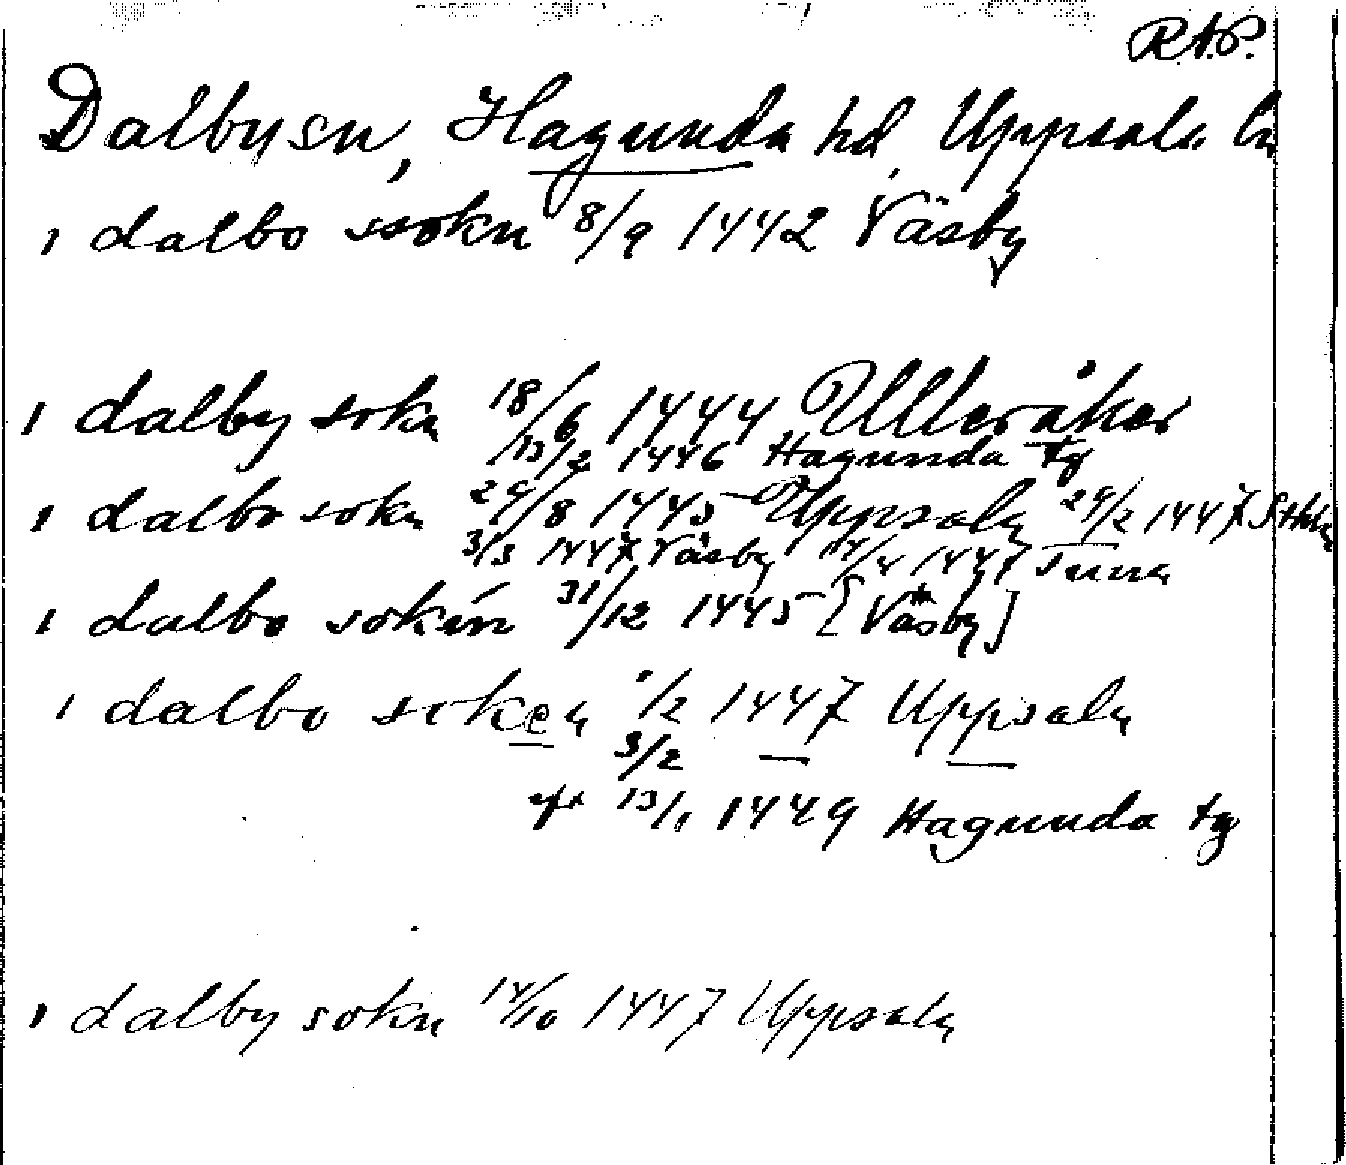 R.A.P.
Dalby sn, Hagunda hd, Uppsala ln
i dalbo ssokn 8/9 1442 Väsby
i dalby sokn 18/6 1444 Ulleråker
13/2 1446 Hagunda tg
i dalbo sokn 29/8 1445 Uppsala 29/2 1447 Sthlm
3/3 1447 Väsby 14/4 1447 Tuna
i dalbo sokin 31/12 1445 [Väsby]
i dalbo soken 1/2 1447 Uppsala
3/2 — —
13/1 1449 Hagunda tg
i dalby sokn 14/10 1447 Uppsala